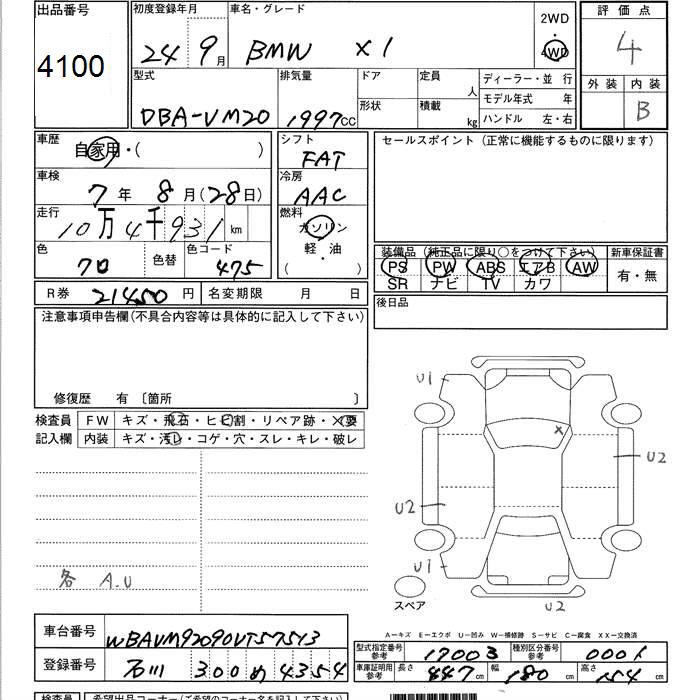 出品番号
4100
初度登録年月
24 9月
車名・グレード
BMW X1
2WD
・
4WD
評価点
4
外装 内装
B
型式
DBA-VM20
排気量
1997cc
ドア
形状
定員
人
積載
kg
ディーラー・並 行
モデル年式 年
ハンドル 左・右
車歴
自家用・( )
シフト
FAT
セールスポイント (正常に機能するものに限ります)
車検
7年 8月(28日)
冷房
AAC
走行
10万4千931km
燃料
ガソリン
軽・油
( )
色
70
色替
色コード
475
装備品 (純正品に限り○をつけて下さい)
PS PW ABS エアB AW
SR ナビ TV カワ
新車保証書
有・無
R券 21450円
名変期限 月 日
後日品
注意事項申告欄(不具合内容等は具体的に記入して下さい)
修復歴 有 〔箇所 〕
検査員
記入欄
FW キズ・飛石・ヒビ割・リペア跡・×要
内装 キズ・汚レ・コゲ・穴・スレ・キレ・破レ
各 A.U
U1
X
U2
U2
U1
U2
スペア
A—キズ E—エクボ U—凹み W—補修跡 S—サビ C—腐食 XX—交換済
車台番号 WBAVM92090VT57513
登録番号 石川 300 め 4354
型式指定番号
参考
17003
種別区分番号
参考
0001
車庫証明用
参考
長さ 447cm 幅 180cm 高さ 154cm
検査員
希望出品コーナー(ご希望のコーナー名を